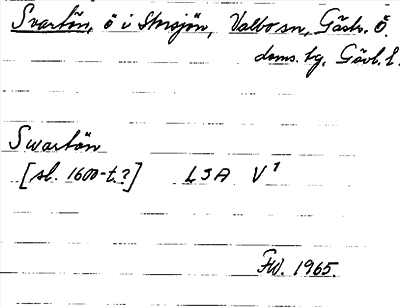 Svartön, ö i Storsjön, Valbo sn, Gästr. Ö.
doms. hg, Gävl. l.
Swartön
[sl. 1600-t.?] LSA V¹
FW. 1965.